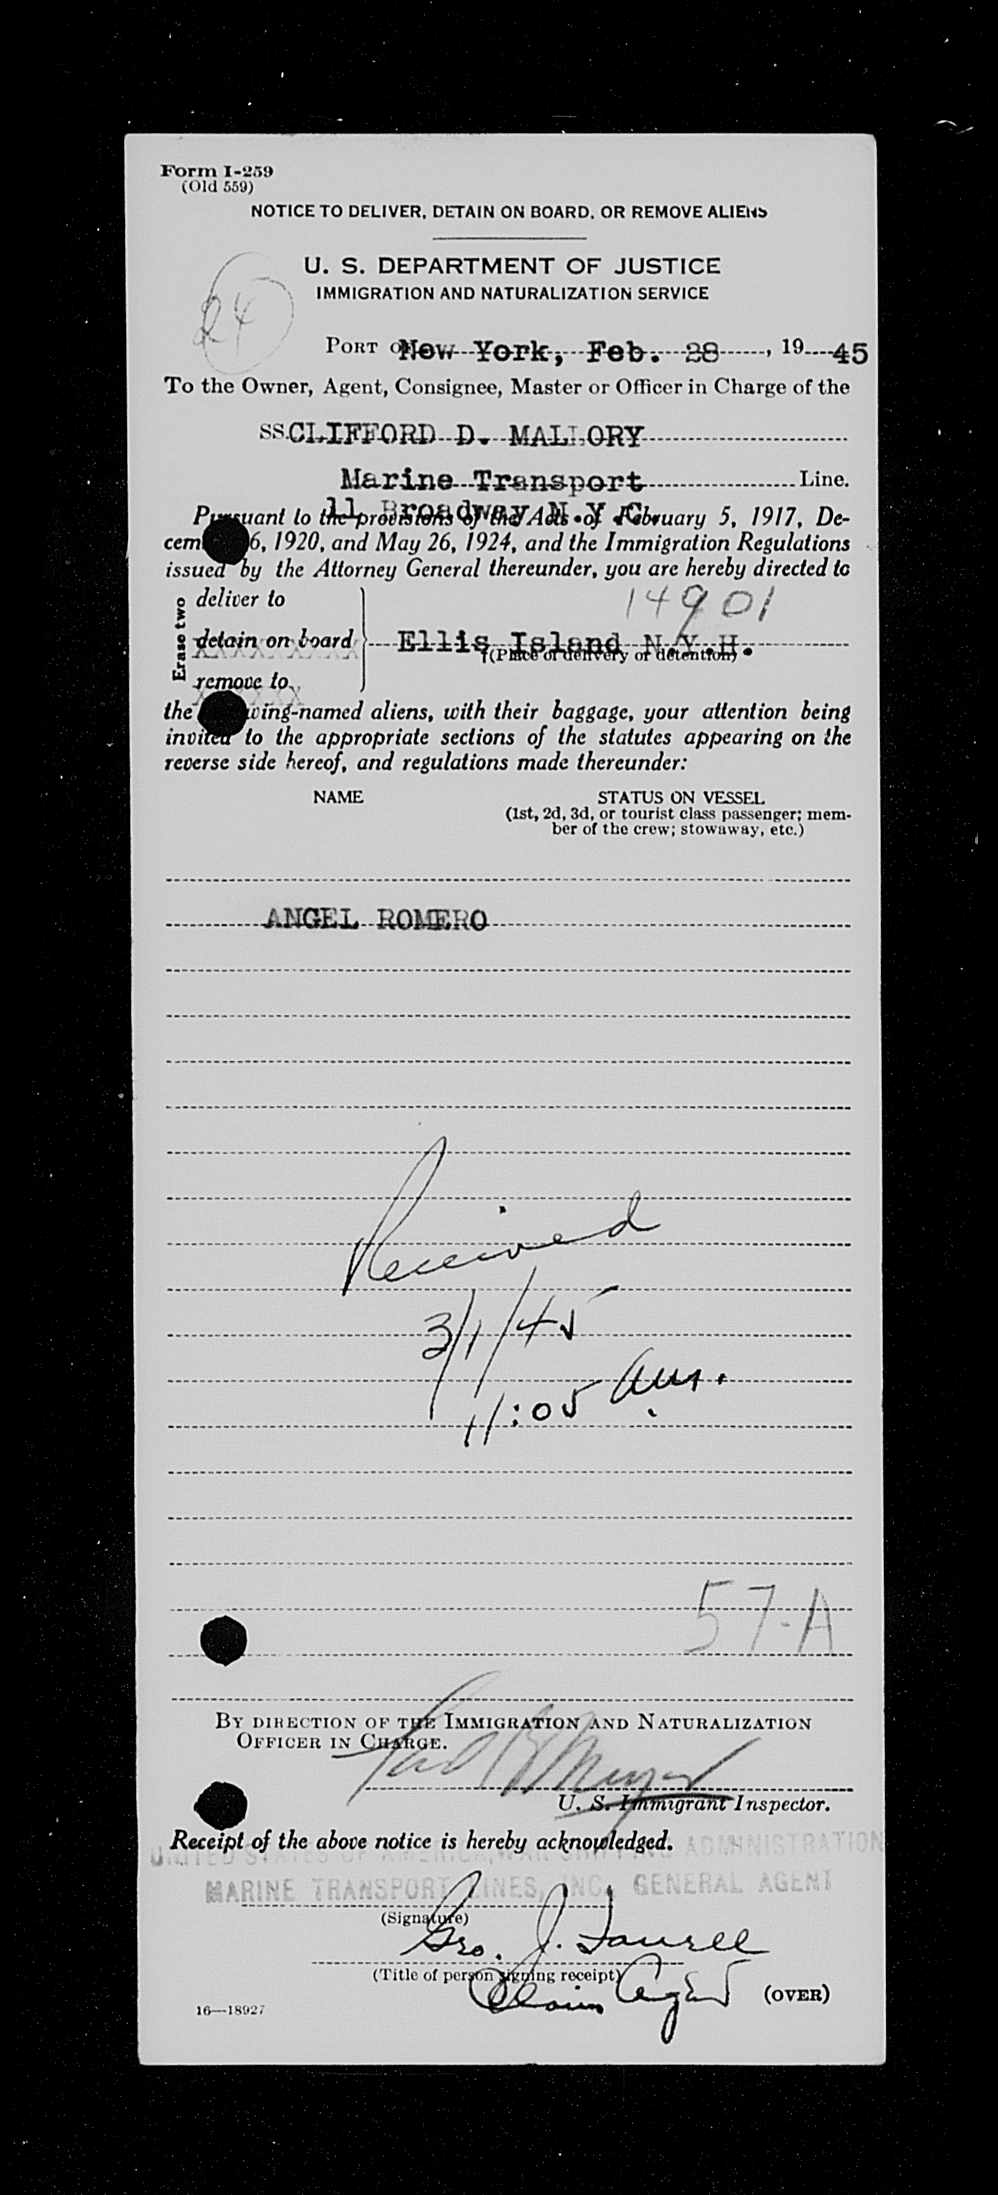 Form I-259
(Old 559)
NOTICE TO DELIVER, DETAIN ON BOARD, OR REMOVE ALIENS
U. S. DEPARTMENT OF JUSTICE
IMMIGRATION AND NATURALIZATION SERVICE
24
PORT OF New York, Feb. 28, 19 45
To the Owner, Agent, Consignee, Master or Officer in Charge of the
SS. CLIFFORD D. MALLORY
Marine Transport Line.
11 Broadway N.Y.C.
Pursuant to the provisions of the Acts of February 5, 1917, De-
cem 6, 1920, and May 26, 1924, and the Immigration Regulations
issued by the Attorney General thereunder, you are hereby directed to
14901
Erase two
deliver to
detain on board
remove to
Ellis Island N.Y.H.
(Place of delivery or detention)
the wing-named aliens, with their baggage, your attention being
invited to the appropriate sections of the statutes appearing on the
reverse side hereof, and regulations made thereunder:
NAME STATUS ON VESSEL
(1st, 2d, 3d, or tourist class passenger; mem-
ber of the crew; stowaway, etc.)
ANGEL ROMERO
Received
3/1/45
11:05 am.
57-A
BY DIRECTION OF THE IMMIGRATION AND NATURALIZATION
OFFICER IN CHARGE.
U. S. Immigrant Inspector.
Receipt of the above notice is hereby acknowledged.
UNITED STATES OF AMERICA, WAR SHIPPING ADMINISTRATION
MARINE TRANSPORT LINES, INC., GENERAL AGENT
(Signature)
Geo. J. Farrell
(Title of person signing receipt)
Claim Agent
(OVER)
16—18927